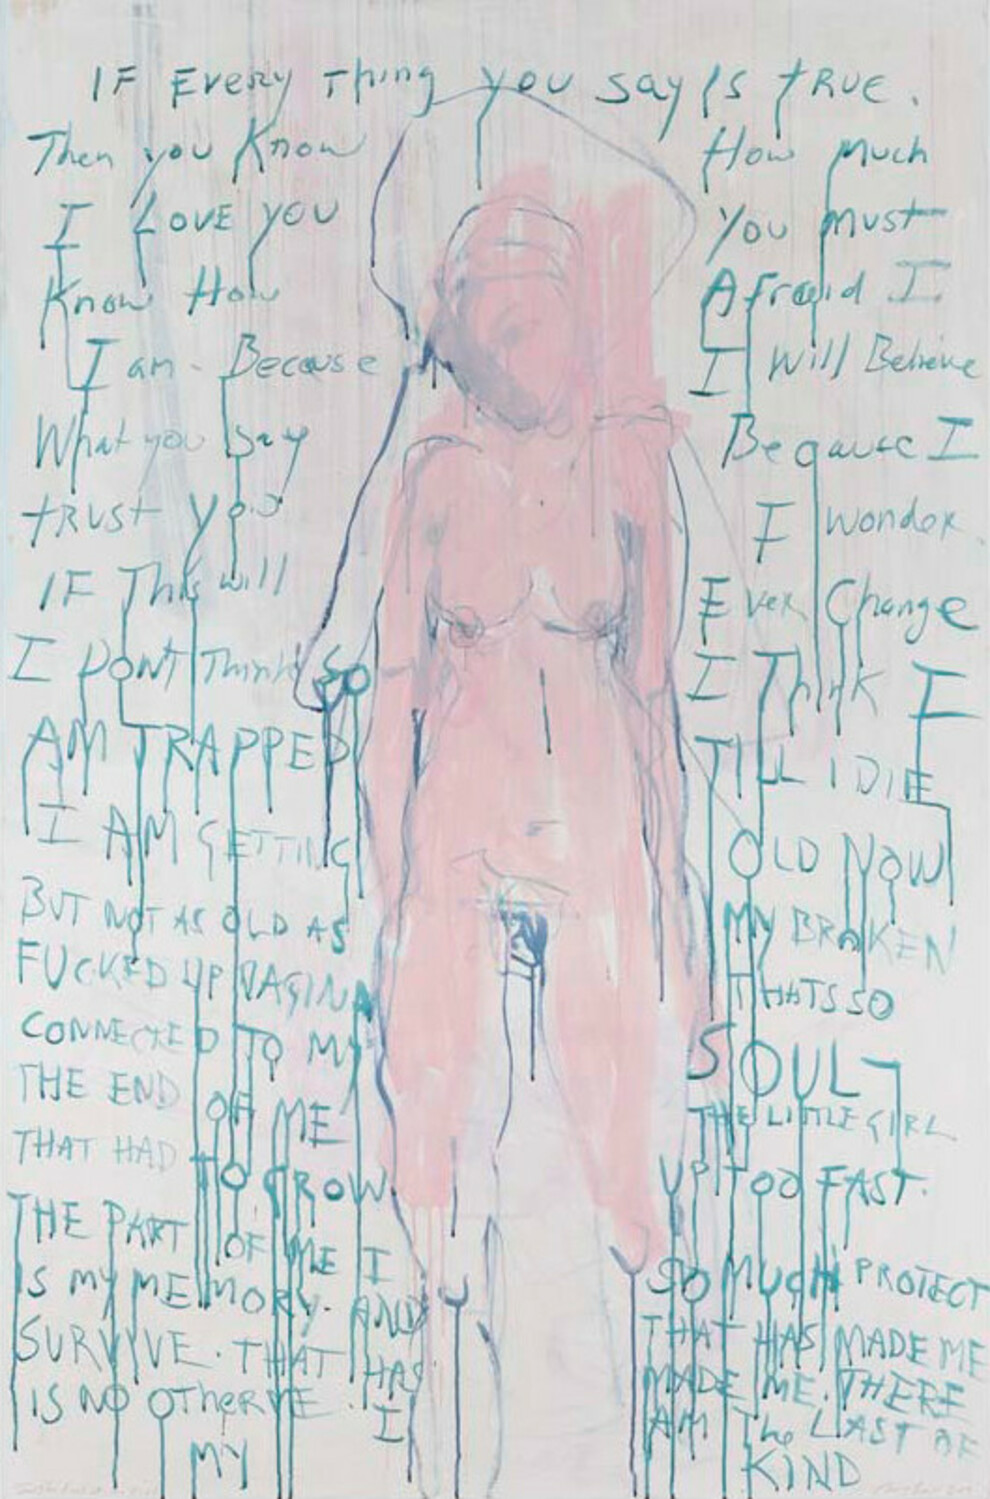 IF Every Thing you say Is tRUE.
Then you Know How Much
I LOVE YOU You Must
Know How Afraid I
I am - Because I Will Believe
What you say Because I
tRUst you I Wonder.
IF This will Ever Change
I DONT Think SO I Think I
AM TRAPPED TILL I DIE
I AM GETTING OLD NOW
BUT NOT AS OLD AS MY BROKEN
FUCKED UP VAGINA THATS SO
CONNECTED TO MY SOUL
THE END OF ME THE LITTLE GIRL
THAT HAD TO GROW UP TOO FAST.
THE PART OF ME I SO MUCH PROTECT
IS MY MEMORY. AND THAT HAS MADE ME
SURVIVE. THAT HAS MADE ME. THERE
IS NO OTher ME. I AM The LAST OF
MY KIND